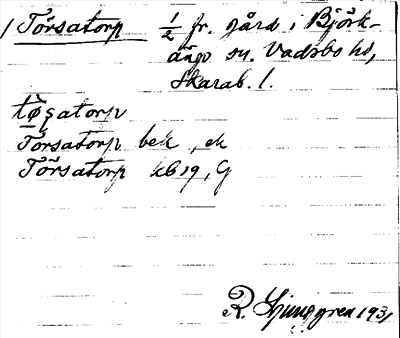 1 Törsatorp 1/2 fr. gård i Björk-
ängs sn. Vadsbo hd,
Skarab. l.
tøşatorp
Törsatorp bek, ek
Törsatorp kb 19, G
R. Ljunggren 1931